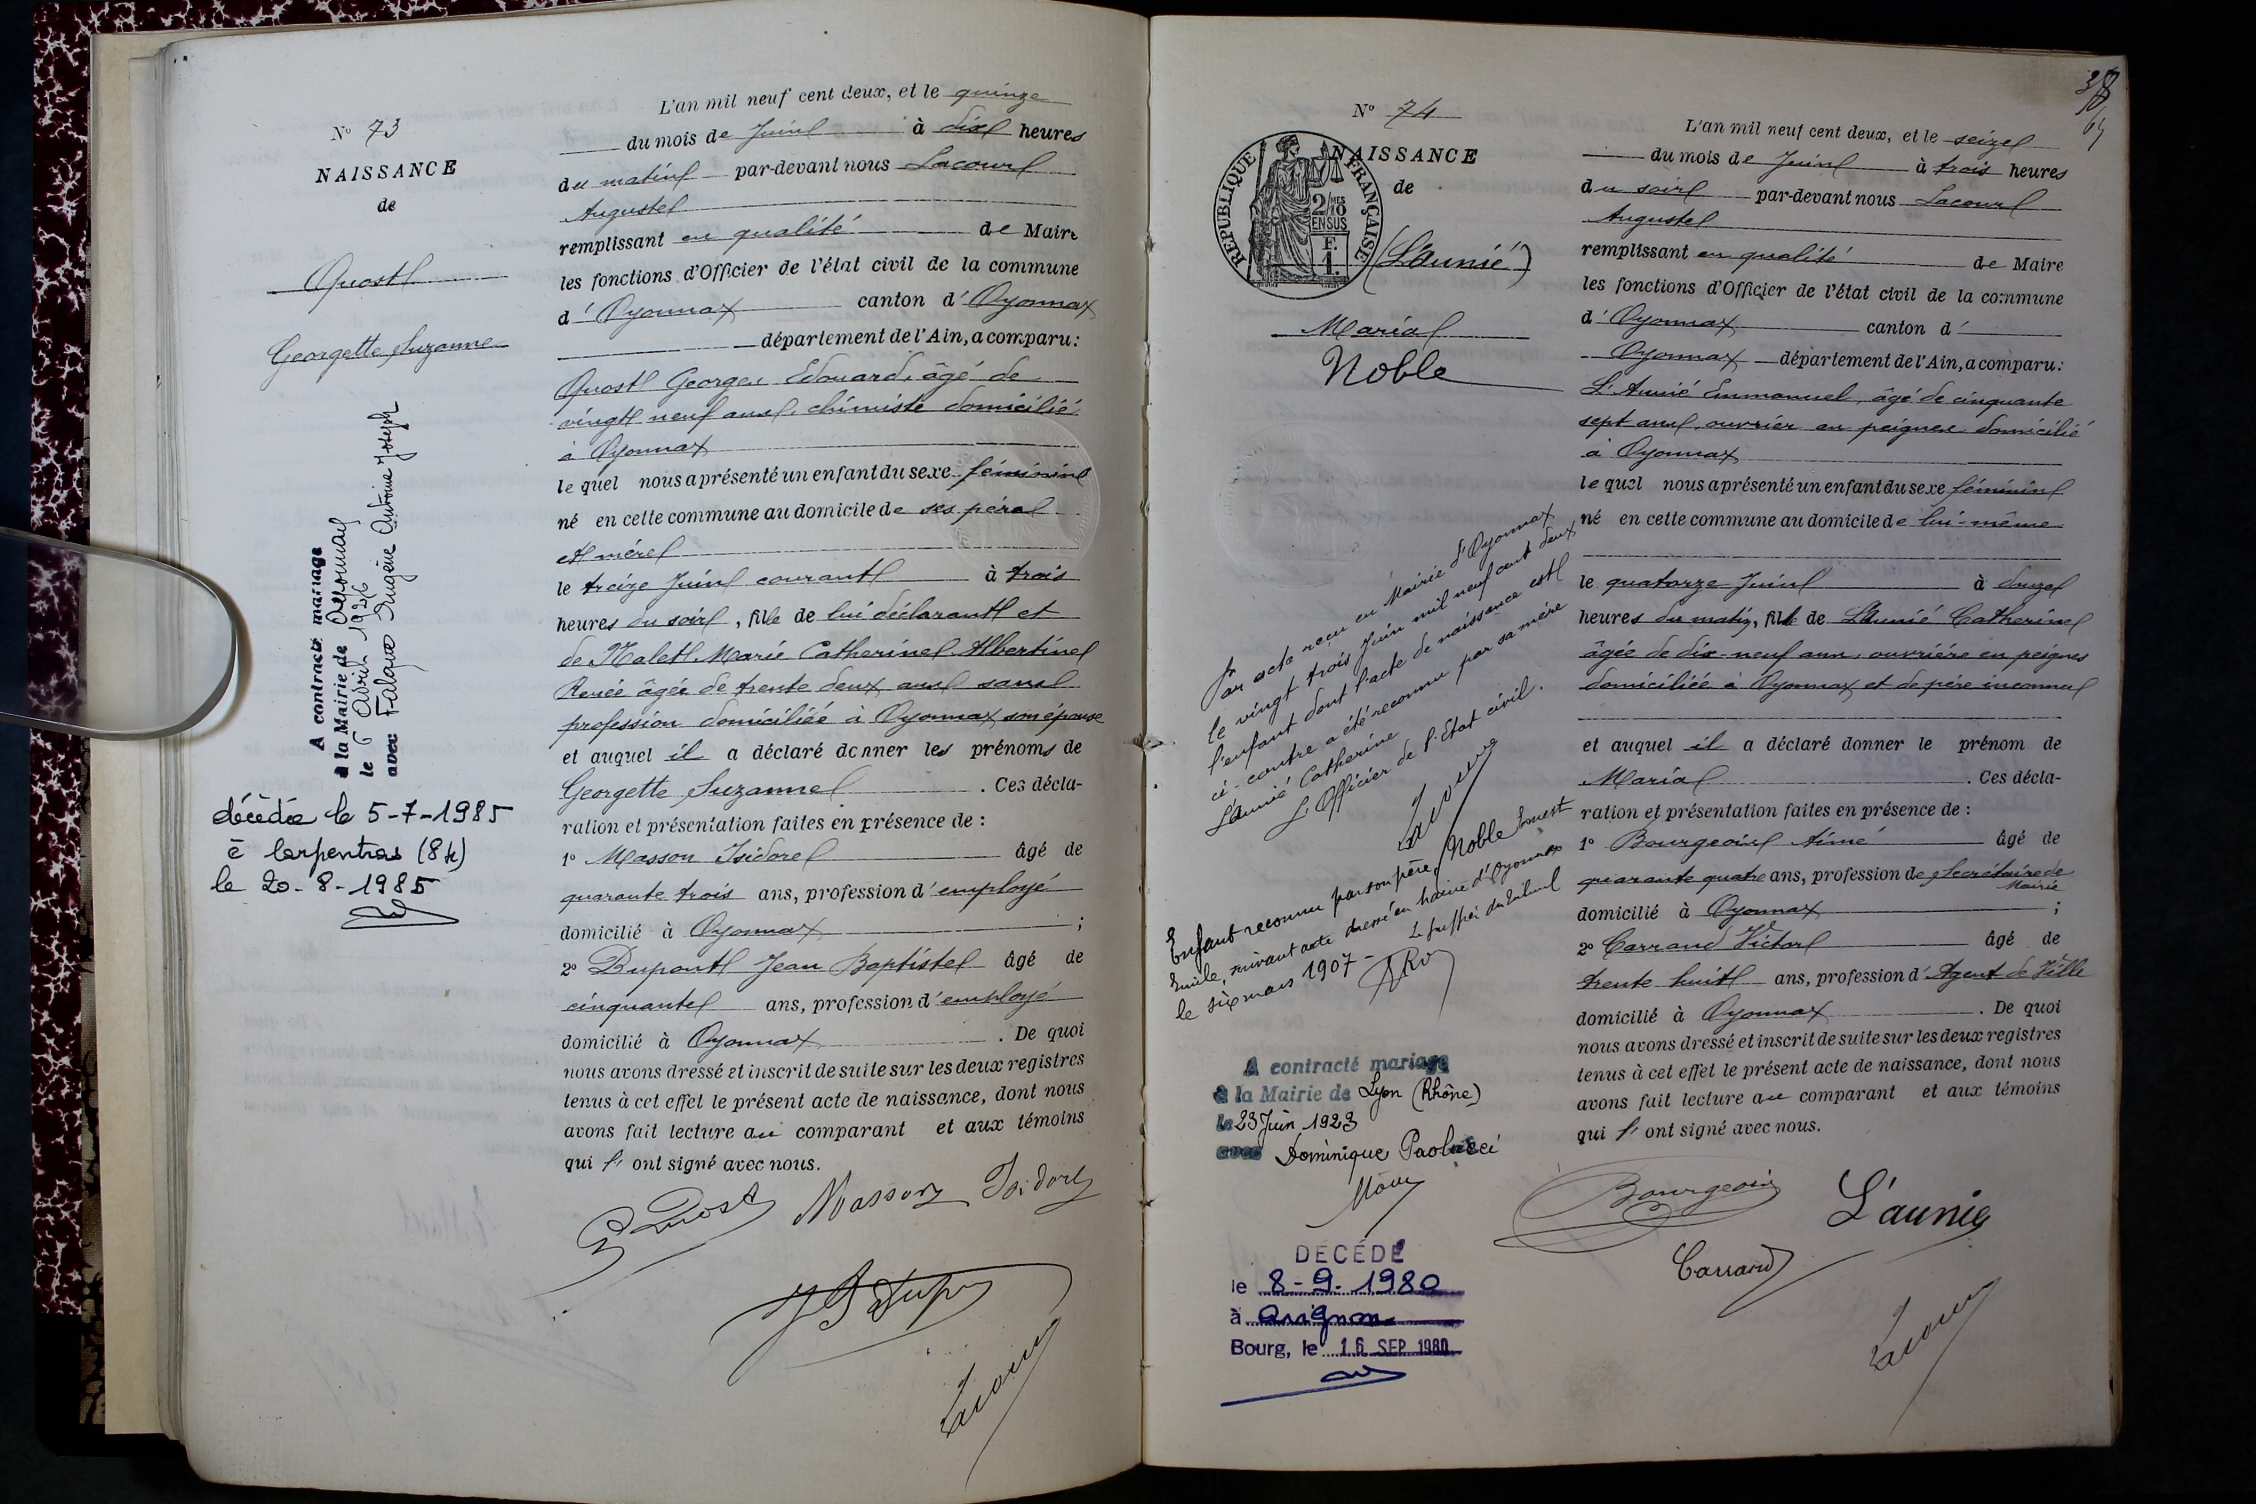 N° 73
NAISSANCE
de
Quost
Georgette Suzanne
A contracté mariage
à la Mairie de Oyonnax
le 6 Avril 1926
avec Falque Eugène Antoine Joseph
décédée le 5-7-1985
à Carpentras (84)
le 20-8-1985
L'an mil neuf cent deux, et le quinze
du mois de Juin à dix heures
du matin par-devant nous Lacour
Auguste
remplissant en qualité de Maire
les fonctions d'Officier de l'état civil de la commune
d'Oyonnax canton d'Oyonnax
département de l'Ain, a comparu :
Quost Georges Edouard, âgé de
vingt neuf ans, chimiste domicilié
à Oyonnax
lequel nous a présenté un enfant du sexe féminin
né en cette commune au domicile de ses père
et mère
le treize Juin courant à trois
heures du soir, fille de lui déclarant et
de Malet Marie Catherine Albertine
Renée âgée de trente deux ans sans
profession domiciliée à Oyonnax son épouse
et auquel il a déclaré donner les prénoms de
Georgette Suzanne. Ces décla-
ration et présentation faites en présence de :
1° Masson Isidore âgé de
quarante trois ans, profession d'employé
domicilié à Oyonnax ;
2° Dupont Jean Baptiste âgé de
cinquante ans, profession d'employé
domicilié à Oyonnax. De quoi
nous avons dressé et inscrit de suite sur les deux registres
tenus à cet effet le présent acte de naissance, dont nous
avons fait lecture au comparant et aux témoins
qui l'ont signé avec nous.
G Quost Masson Isidore
J B Dupon
Lacour
38
N° 74
NAISSANCE
de
REPUBLIQUE FRANÇAISE
2/10
EN SUS
F.
1.
(L'aunié)
Maria
Noble
Par acte reçu en Mairie d'Oyonnax
le vingt trois Juin mil neuf cent deux
l'enfant dont l'acte de naissance est
ci-contre a été reconnu par sa mère
L'aunié Catherine
L'Officier de l'Etat civil.
Lacour
Enfant reconnu par son père, Noble Ernest
Emile, suivant acte dressé en mairie d'Oyonnax
le six mars 1907 -
A contracté mariage
à la Mairie de Lyon (Rhône)
le 23 Juin 1923
avec Dominique Paolucci
DÉCÉDÉ
le 8-9-1980
à Avignon
Bourg, le 16 SEP 1980
L'an mil neuf cent deux, et le seize
du mois de Juin à trois heures
du soir par-devant nous Lacour
Auguste
remplissant en qualité de Maire
les fonctions d'Officier de l'état civil de la commune
d'Oyonnax canton d'
Oyonnax département de l'Ain, a comparu :
L'Aunié Emmanuel, âgé de cinquante
sept ans, ouvrier en peignes domicilié
à Oyonnax
lequel nous a présenté un enfant du sexe féminin
né en cette commune au domicile de lui-même
le quatorze Juin à douze
heures du matin, fille de L'aunié Catherine
âgée de dix-neuf ans, ouvrière en peignes
domiciliée à Oyonnax et de père inconnu
et auquel il a déclaré donner le prénom de
Maria. Ces décla-
ration et présentation faites en présence de :
1° Bourgeois Aimé âgé de
quarante quatre ans, profession de Secrétaire de
Mairie
domicilié à Oyonnax ;
2° Carrand Victor âgé de
trente huit ans, profession d'Agent de Ville
domicilié à Oyonnax. De quoi
nous avons dressé et inscrit de suite sur les deux registres
tenus à cet effet le présent acte de naissance, dont nous
avons fait lecture au comparant et aux témoins
qui l'ont signé avec nous.
Bourgeois L'aunié
Carrand
Lacour